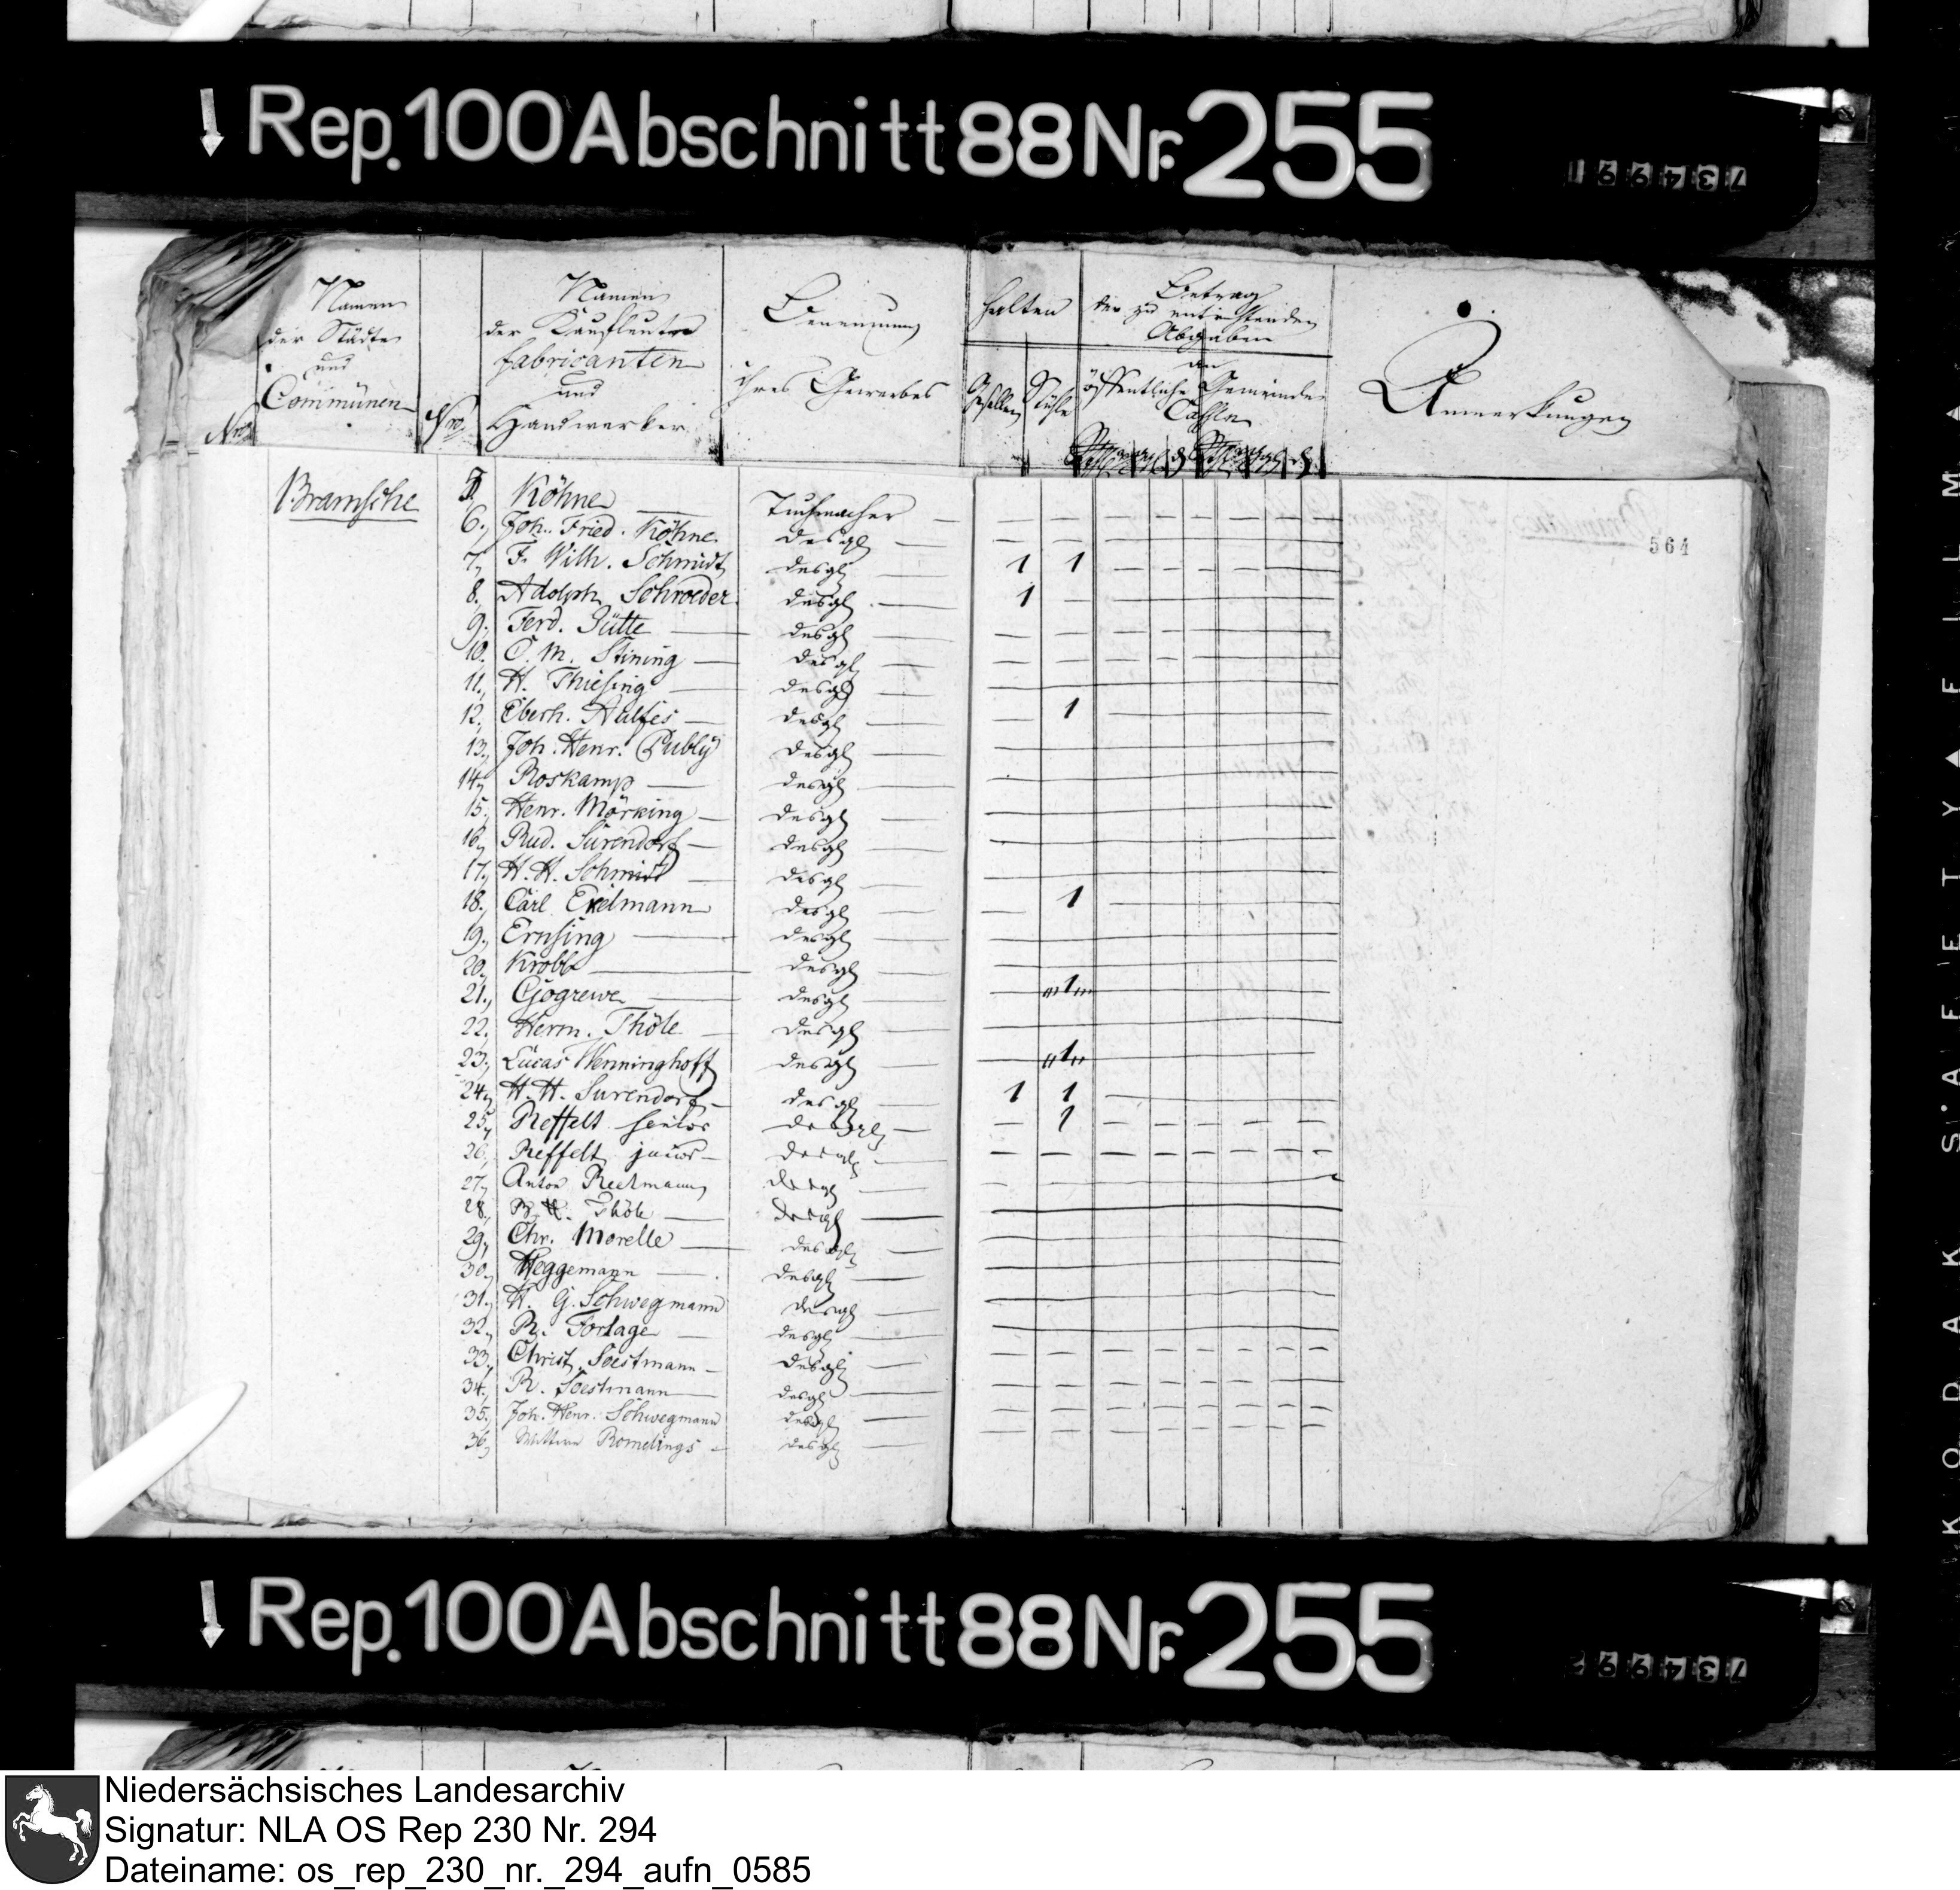 Rep. 100 Abschnitt 88 Nr. 255
734991
Namen der Städte und Communen
Nro
Namen der Kaufleute fabricanten und Handwerker
Benennung ihres Gewerbes
halten
Gesellen
Stühle
Betrag der zu entrichtenden Abgaben
an
öffentliche
Gemeinde
Cassen
Anmerkungen
564
Bramsche
5. Köhne — Tuchmacher —
6. Joh. Fried. Köhne. desgl —
7. F. Wilh. Schmidt desgl — 1 1
8. Adolph Schroeder desgl — 1
9. Ferd. Gütte — desgl —
10. C. M. Stining — desgl —
11. H. Thiesing — desgl —
12. Eberh. Aulfes — desgl — 1
13. Joh. Henr. Publy desgl —
14. Roskamp — desgl —
15. Henr. Mörking — desgl —
16. Rud. Surendorf — desgl —
17. H. H. Schmidt — desgl —
18. Carl Ekelmann desgl — 1
19. Ernsing — desgl —
20. Krobb — desgl —
21. Gogrewe — desgl — "1"
22. Herm. Thöle — desgl —
23. Lucas Wenninghoff desgl — "1"
24. H. H. Surendorf — desgl — 1 1
25. Reffelt senior desgl — 1
26. Reffelt junior — desgl —
27. Anton Rectmann desgl —
28. B. H. Thöle — desgl —
29. Chr. Morelle — desgl —
30. Heggemann — desgl —
31. H. G. Schwegmann desgl
32. R. Fortage — desgl —
33. Christ. Soestmann — desgl —
34. R. Soestmann — desgl —
35. Joh. Henr. Schwegmann desgl —
36. Romelings — desgl —
Rep. 100 Abschnitt 88 Nr. 255
734992
KODAK SAFETY FILM
Niedersächsisches Landesarchiv
Signatur: NLA OS Rep 230 Nr. 294
Dateiname: os_rep_230_nr._294_aufn_0585